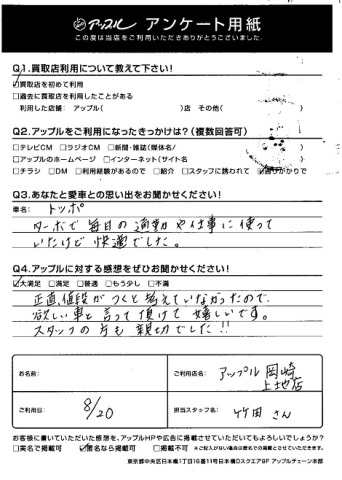 アップル アンケート用紙
この度は当店をご利用いただきありがとうございました。
Q.1.買取店利用について教えて下さい!
☑買取店を初めて利用
□過去に買取店を利用したことがある
利用した店舗: アップル( )店 その他(
Q2.アップルをご利用になったきっかけは?(複数回答可)
□テレビCM □ラジオCM □新聞・雑誌(媒体名/
□アップルのホームページ □インターネット(サイト名
□チラシ □DM □利用経験があるので □紹介 □スタッフに誘われて ☑通りがかりで
Q3.あなたと愛車との思い出をお聞かせください!
車名: トッポ
ターボで毎日の通勤や仕事に使って
いたけど快適でした。
Q4.アップルに対する感想をぜひお聞かせください!
☑大満足 □満足 □普通 □もう少し □不満
正直、値段がつくと考えていなかったので、
欲しい車と言って頂けて嬉しいです。
スタッフの方も親切でした!!
お名前:
ご利用店名: アップル岡崎
上地店
ご利用日: 8/20
担当スタッフ名: 竹田さん
お客様に書いていただいた感想を、アップルHPや広告に掲載させていただいてもよろしいでしょうか?
□実名で掲載可 ☑匿名なら掲載可 □掲載不可 ※ご記入がない場合は匿名にて掲載させていただく場合がございます。
東京都中央区日本橋1丁目16番11号日本橋Dスクエア9F アップルチェーン本部